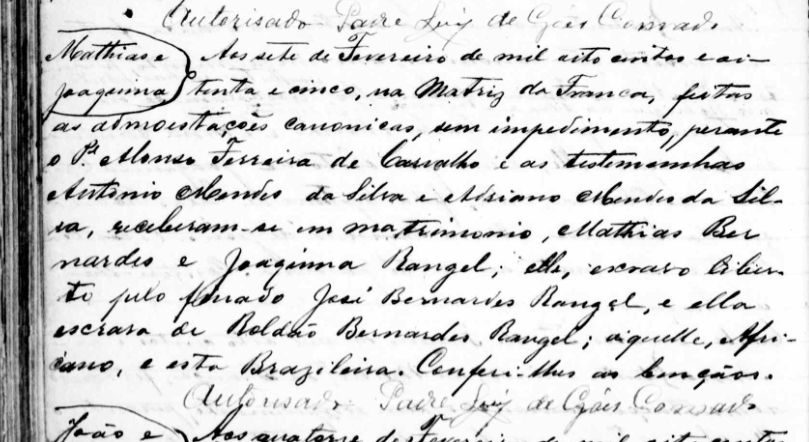 Autorisado Padre Luiz de Góes Conrado
Mathias e
Joaquina
Aos sete de Fevereiro de mil oito centos e oi-
tenta e cinco, na Matriz da Franca, feitas
as admoestações canonicas, sem impedimento, perante
o Pe Alonso Ferreira de Carvalho e as testemunhas
Antonio Mendes da Silva e Adriano Mendes da Sil-
va, receberam-se em matrimonio, Mathias Ber
nardes e Joaquina Rangel; elle, escravo liber-
to pelo finado José Bernardes Rangel, e ella
escrava de Roldão Bernardes Rangel; aquelle, Afri-
cano, e esta Brazileira. Conferi-lhes as bençãos.
Autorisado Padre Luiz de Góes Conrado
João e
Aos quatorze de Fevereiro de mil oito centos